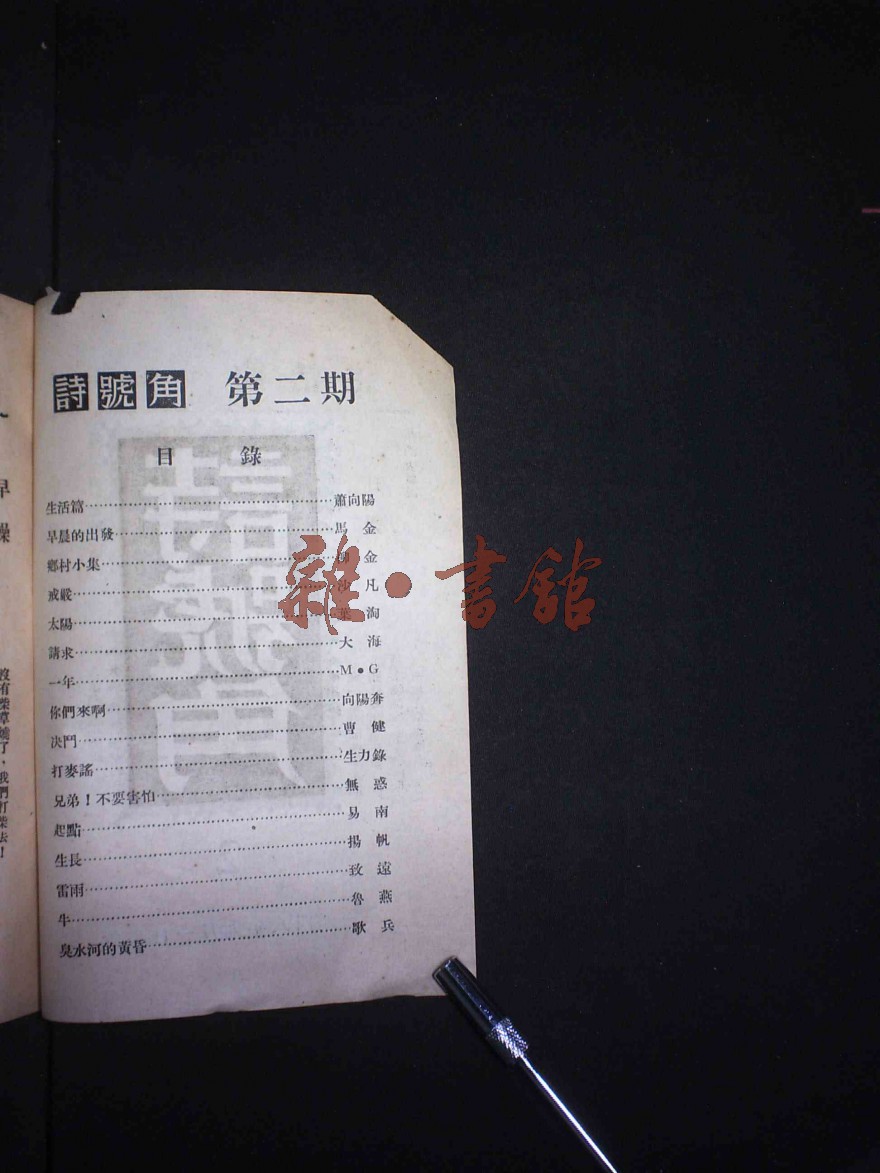 詩號角 第二期
目錄
生活篇……蕭向陽
早晨的出發……馬金
鄉村小集……金
戒嚴……沙凡
太陽……淘
請求……大海
一年……M•G
你們來啊……向陽奔
決鬥……曹健
打麥謠……生力錄
兄弟！不要害怕……無惑
起點……易南
生長……揚帆
雷雨……致遠
牛……魯燕
臭水河的黃昏……歌兵
雜•書館
早
操
沒有柴草燒了，我們打柴去！